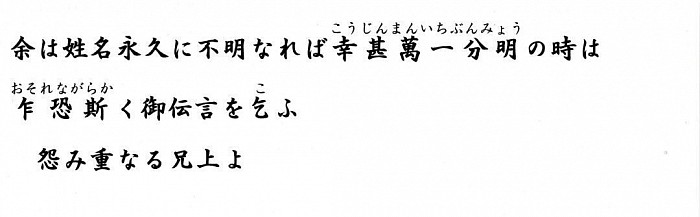 こうじんまんいちぶんみょう
余は姓名永久に不明なれば幸甚萬一分明の時は
おそれながらか こ
乍恐斯く御伝言を乞ふ
怨み重なる兄上よ